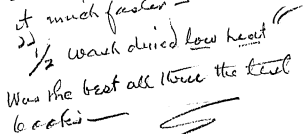 it much faster —
1/2 wash dried low heat
Was the best all three the